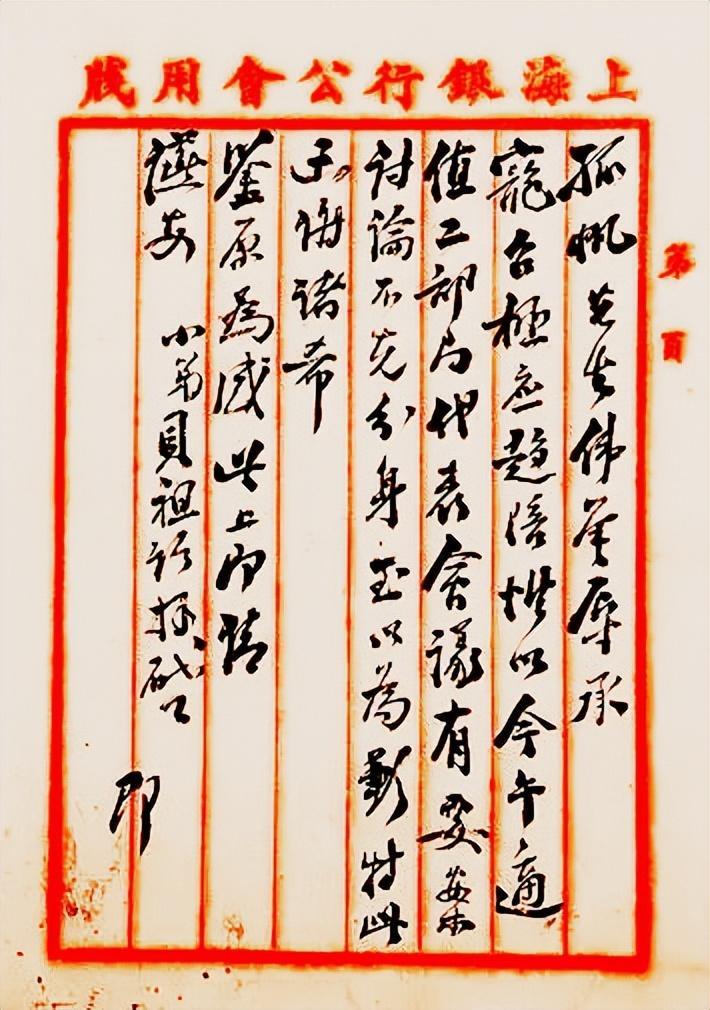 上海銀行公會用牋
第 頁
孤帆先生偉鑒辱承
寵召極應趨陪惟以今午適
值工部局代表會議有要案
討論不克分身至以為歉特此
函謝諸希
鑒原為感此上即請
讌安 小弟貝祖詒拜啟
即